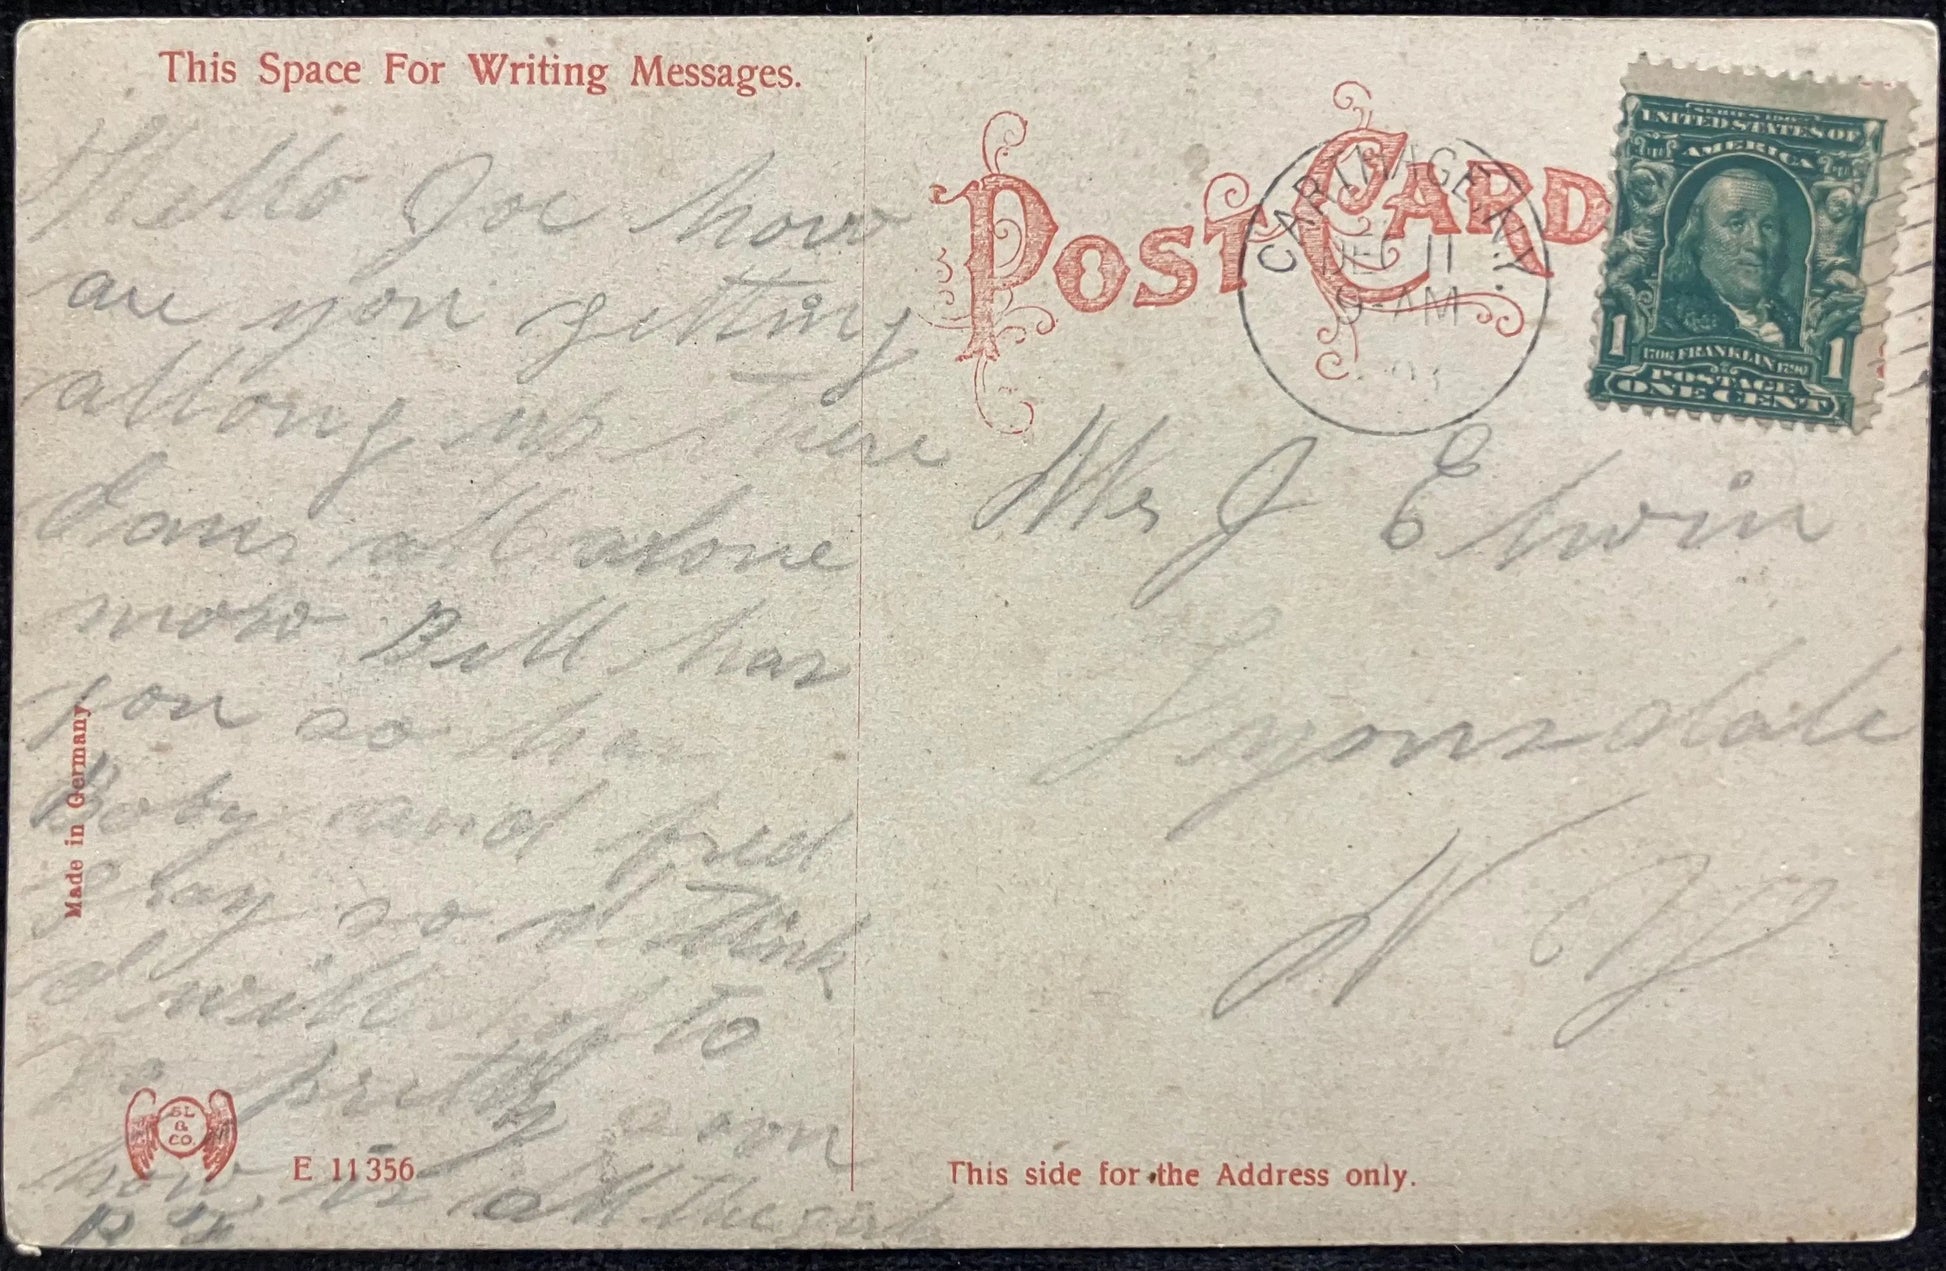 This Space For Writing Messages.
Hello Joe how
are you getting
allong up there
I am all alone
now Bill has
you so has
Boby and fred
Shay so I think
I will hof to
be pretty soon
how is all the rest
Made in Germany
SL & CO.
E 11356
POST CARD
CARTHAGE, N.Y.
DEC 11
9-AM
SERIES 1902
UNITED STATES OF
AMERICA
1 1706 FRANKLIN 1790 1
POSTAGE
ONE CENT
Mrs J Erwin
Lyonsdale
N Y
This side for the Address only.